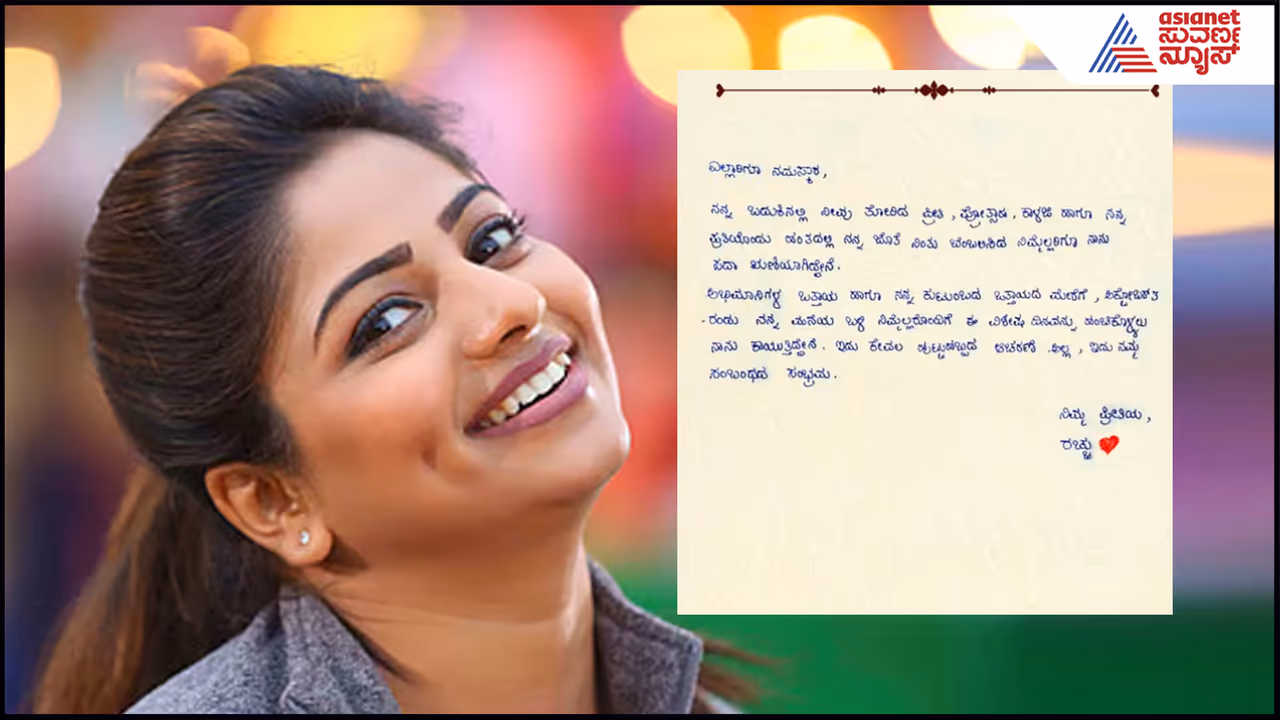 asianet
ಸುವರ್ಣ
ನ್ಯೂಸ್
ಎಲ್ಲಾರಿಗೂ ನಮಸ್ಕಾರ,
ನನ್ನ ಬದುಕಿನಲ್ಲಿ ನೀವು ತೋರಿದ ಪ್ರೀತಿ, ಪ್ರೋತ್ಸಾಹ, ಕಾಳಜಿ ಹಾಗೂ ನನ್ನ
ಪ್ರತಿಯೊಂದು ಹಂತದಲ್ಲಿ ನನ್ನ ಜೊತೆ ನಿಂತು ಬೆಂಬಲಿಸಿದ ನಿಮ್ಮೆಲ್ಲರಿಗೂ ನಾನು
ಸದಾ ಋಣಿಯಾಗಿದ್ದೇನೆ.
ಅಭಿಮಾನಿಗಳ ಒತ್ತಾಯ ಹಾಗೂ ನನ್ನ ಕುಟುಂಬದ ಒತ್ತಾಯದ ಮೇರೆಗೆ, ಅಕ್ಟೋಬರ್ 3
-ರಂದು ನನ್ನ ಮನೆಯ ಬಳಿ ನಿಮ್ಮೆಲ್ಲರೊಂದಿಗೆ ಈ ವಿಶೇಷ ದಿನವನ್ನು ಹಂಚಿಕೊಳ್ಳಲು
ನಾನು ಕಾಯುತ್ತಿದ್ದೇನೆ. ಇದು ಕೇವಲ ಹುಟ್ಟುಹಬ್ಬದ ಆಚರಣೆ ಅಲ್ಲ, ಇದು ನಮ್ಮ
ಸಂಬಂಧದ ಸಂಭ್ರಮ.
ನಿಮ್ಮ ಪ್ರೀತಿಯ,
ರಚ್ಚು ❤️